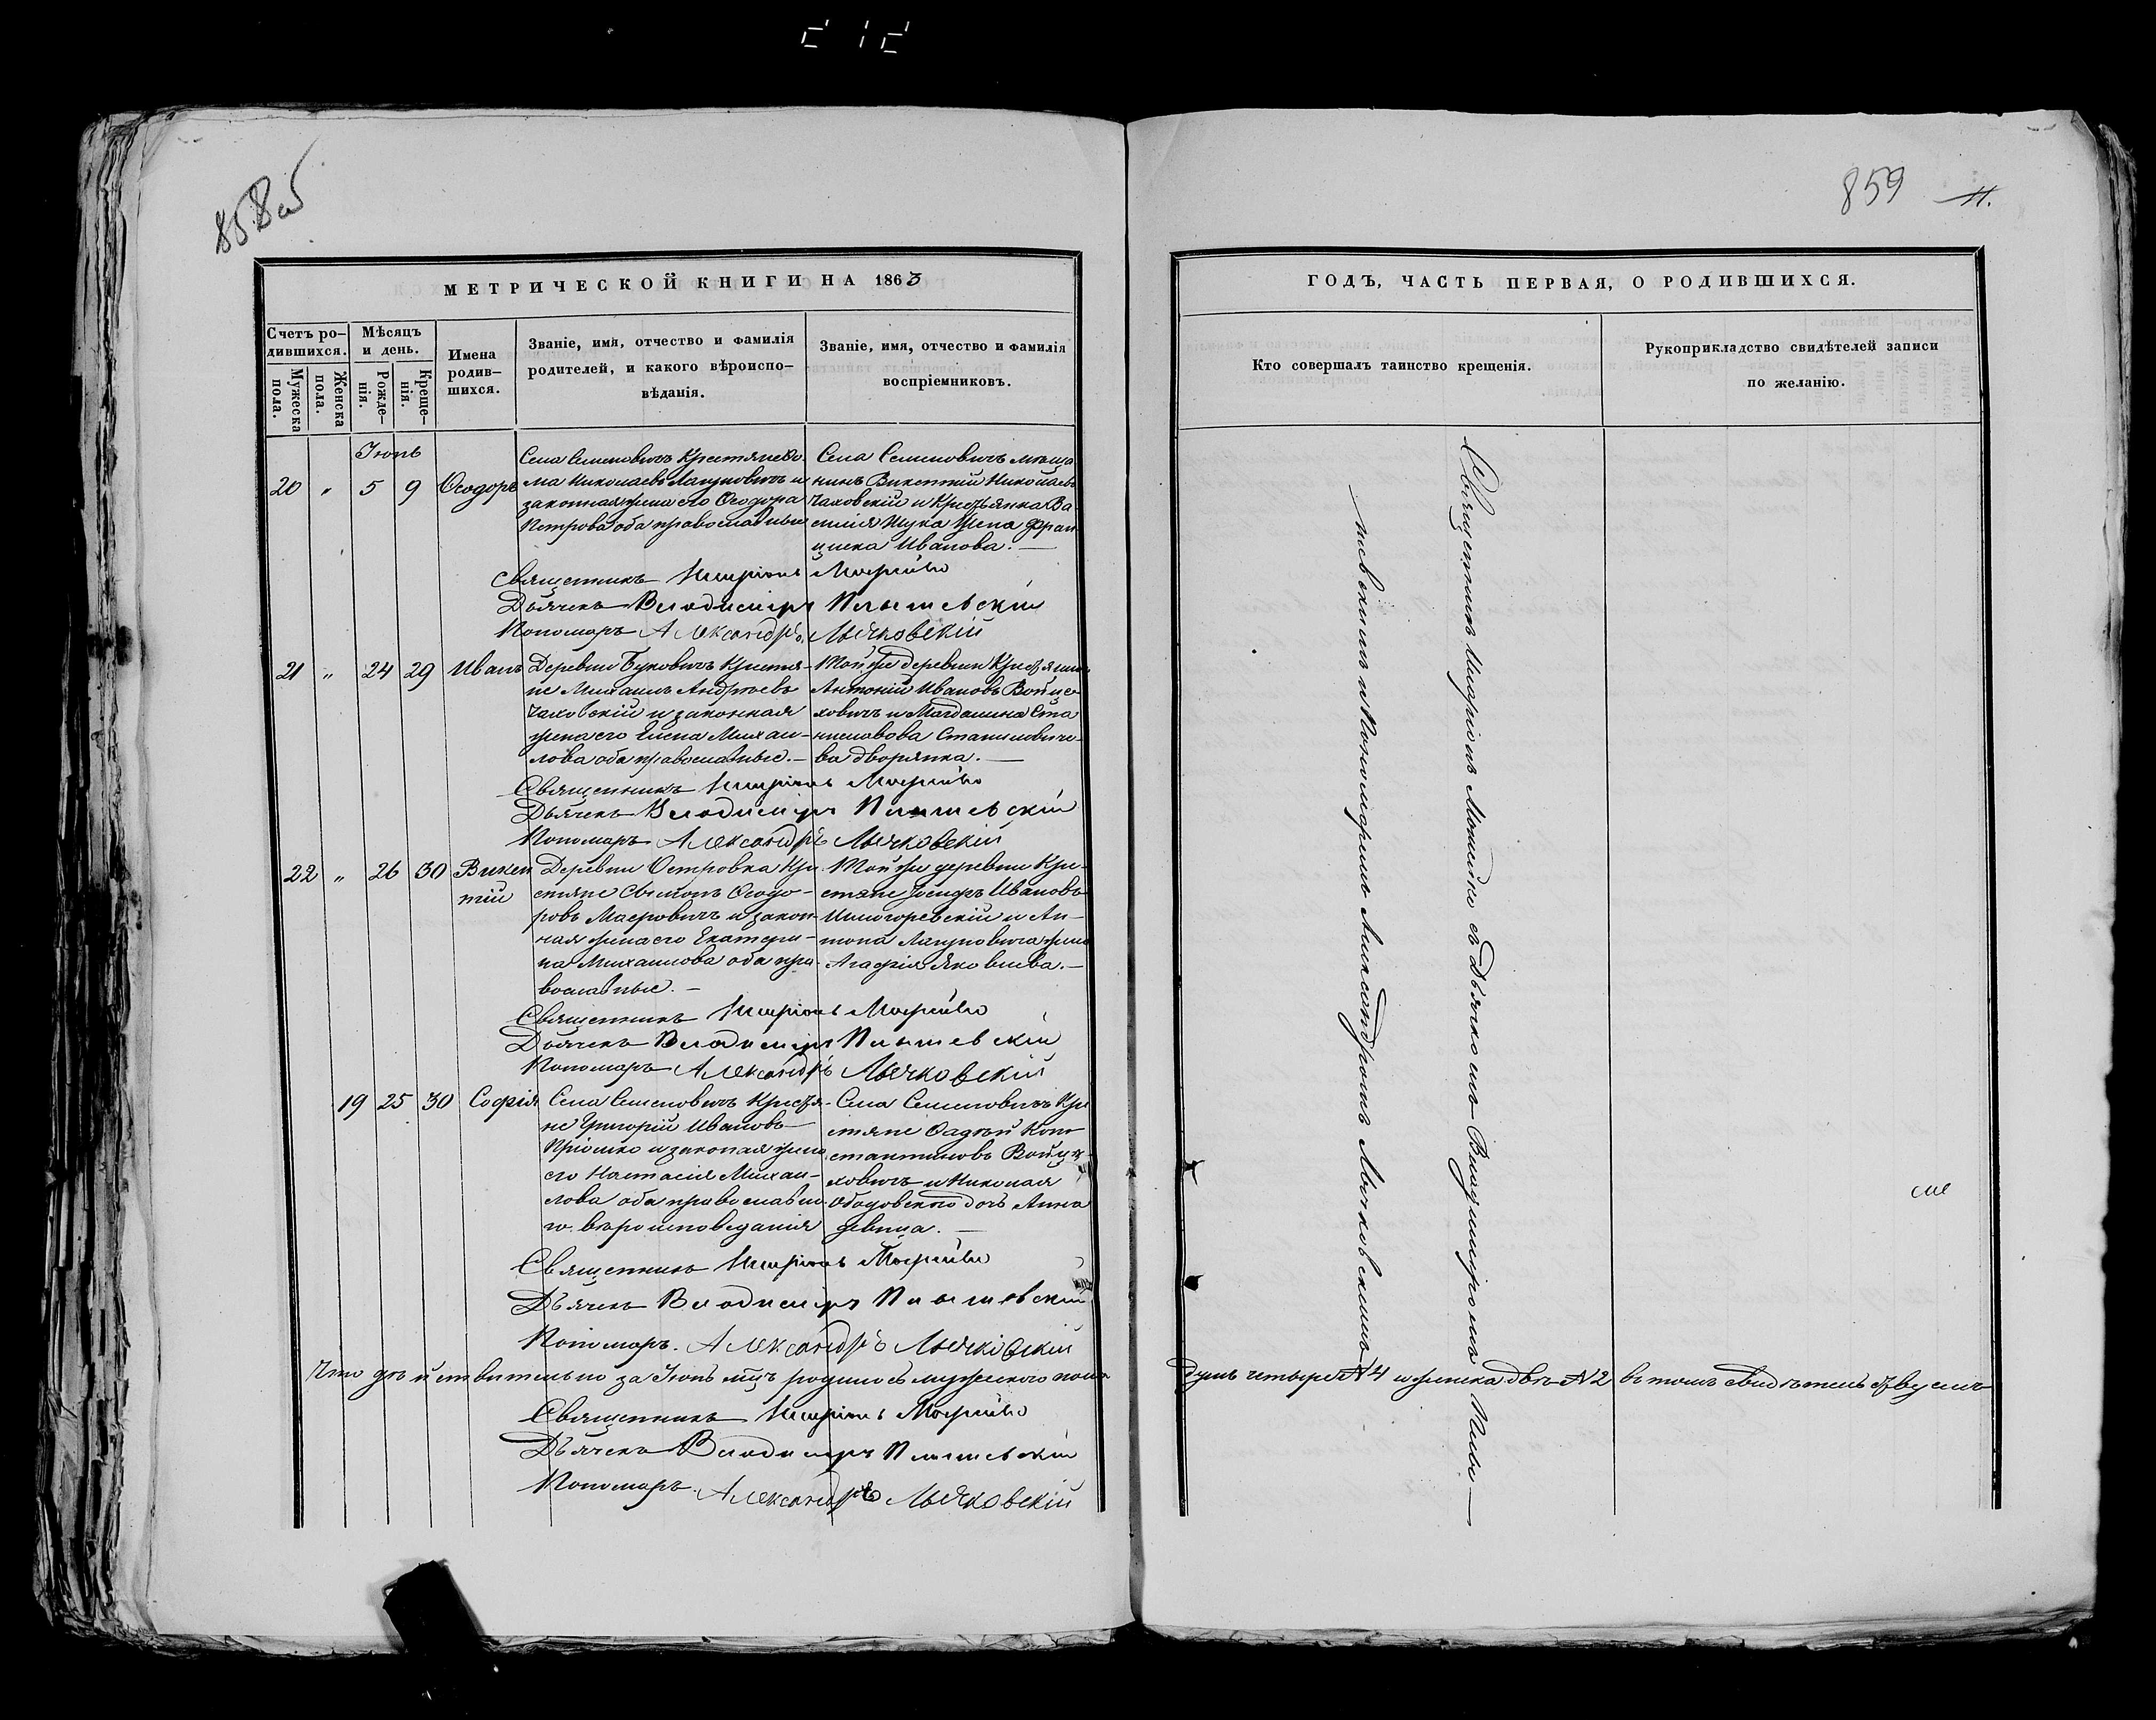 858 об
МЕТРИЧЕСКОЙ КНИГИ НА 1863
Счетъ ро-
дившихся.
Мужеска
пола.
Женска
пола.
Мѣсяцъ
и день.
Рожде-
нія.
Креще-
нія.
Имена
родив-
шихся.
Званіе, имя, отчество и фамилія
родителей, и какого вѣроиспо-
вѣданія.
Званіе, имя, отчество и фамилія
воспріемниковъ.
Іюнь
20 " 5 9 Ѳеодоръ
Села Семеновичъ Крестяне Ѳо
ма Николаевъ Лагуновичъ и
законная жена его Ѳеодора
Петрова оба православные
Села Семеновичъ мѣща
нинъ Викентій Николаевъ
Чаховскій и Крестьянка Ва
силія Жука жена Фран
циска Иванова. —
Священникъ Иларіонъ
Дьячекъ Владимиръ
Пономарь Александръ Лычковскій
21 " 24 29 Иванъ
Деревни Буковичъ Крестя-
не Михаилъ Андреевъ
Чаховскій и законная
жена его Елена Михаи-
лова оба православные. —
Той же деревни Крестьянинъ
Антоній Ивановъ Войце
ховичъ и Магдалина Ста
ниславова Станилевиче-
ва дворянка. —
Священникъ Иларіонъ
Дьячекъ Владимиръ
Пономарь Александръ Лычковскій
22 " 26 30 Викен
тій
Деревни Островка Кре
стяне Семіонъ Ѳеодо-
ровъ и закон-
ная жена его Екатери-
на Михаилова оба пра-
вославные. —
Той же деревни Кре-
стяне Іосифъ Ивановъ
и Ан-
тона Лагуновича жена
Агафія Яковлева. —
Священникъ Иларіонъ
Дьячекъ Владимиръ
Пономарь Александръ Лычковскій
19 25 30 Софія
Села Семеновичъ Крестя-
не Григорій Ивановъ
и законая жена
его Настасія Михаи-
лова оба православна
го вѣроисповеданія
Села Семеновичъ Кре
стяне Фадѣй Кон
стантиновъ Войце
ховичъ и Николая
дочь Анна
девица. —
Священникъ Иларіонъ
Дьячекъ Владимиръ
Пономарь. Александръ Лычковскій
Что дѣйствительно за Іюнь мцъ родилось мужеского пола
Священникъ Иларіонъ
Дьячекъ Владимиръ
Пономарь. Александръ Лычковскій
859 11.
ГОДЪ, ЧАСТЬ ПЕРВАЯ, О РОДИВШИХСЯ.
Кто совершалъ таинство крещенія.
Рукоприкладство свидѣтелей записи
по желанію.
Священникъ Иларіонъ съ Дьячкомъ Владимиромъ
и Пономаремъ Александромъ Лычковскимъ
душъ четыре № 4 и женска двѣ № 2 въ томъ свидѣтельствуемъ